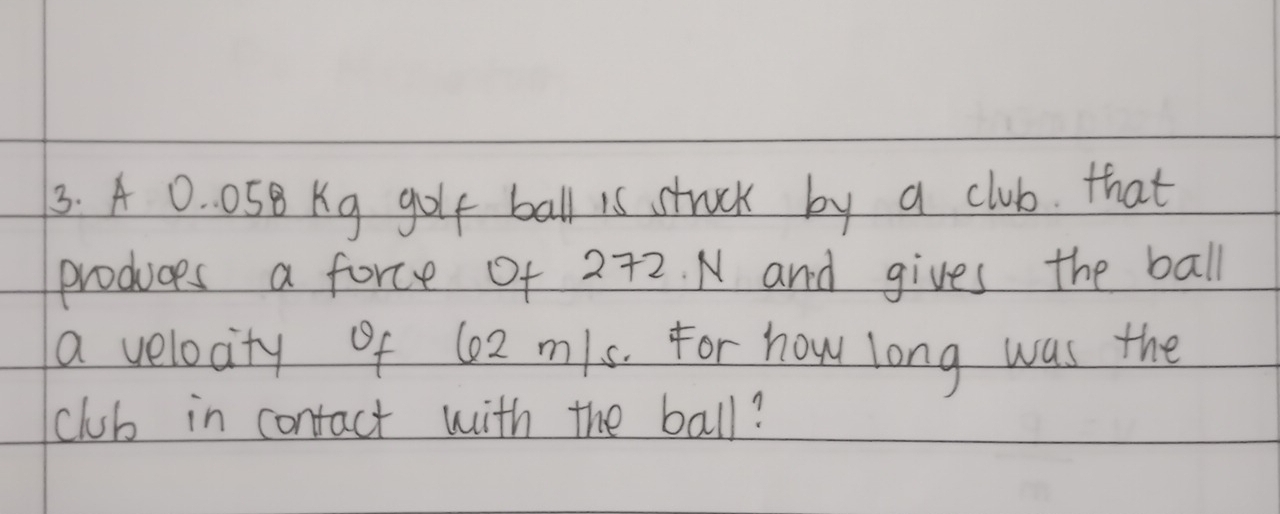 3. A 0..058 Kg golf ball is struck by a club. that
produces a force Of 272.N and gives the ball
a velocity Of 62 m/s. For how long was the
club in contact with the ball?